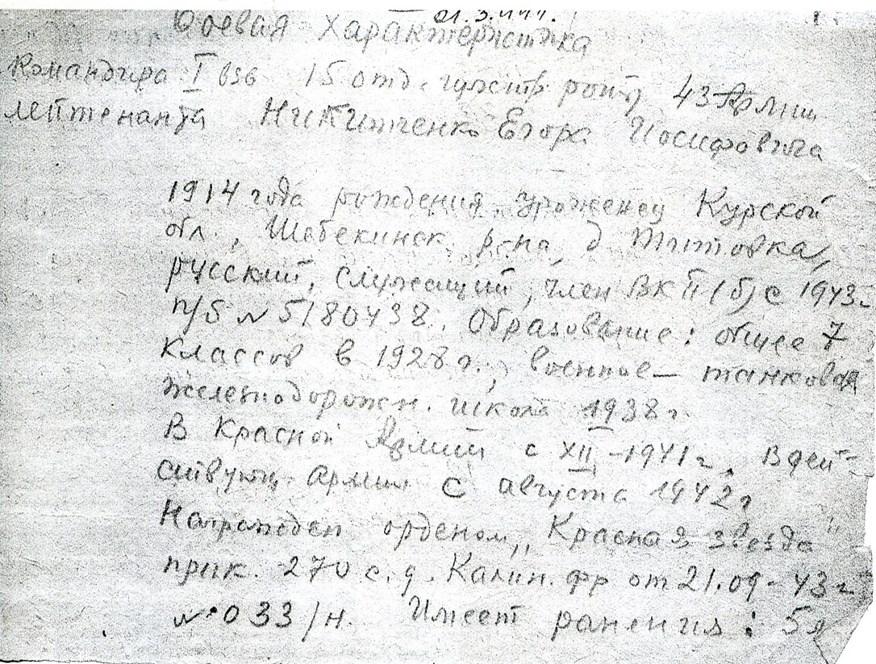 21.3.1944.
Боевая характеристика
Командира I взв 15 отд. штр роты 43 Армии
лейтенанта Никитченко Егора Иосифовича
1914 года рождения, уроженец Курской
обл., Шебекинск. р-на, д Титовка,
русский, служащий, член ВКП(б) с 1943г
п/б № 5180438. Образование: общее 7
классов в 1928 г., военное — танковая
железнодорожн. школа 1938 г
В Красной Армии с XII-1941 г. В дей-
ствующ. армии с августа 1942 г
Награжден орденом „Красная звезда"
прик. 270 с.д. Калин. фр от 21.09-43 г
№ 033/н. Имеет ранения: 5я